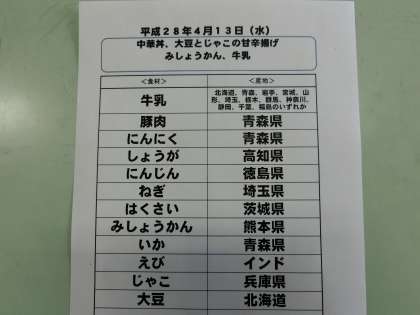 平成28年4月13日（水）
中華丼、大豆とじゃこの甘辛揚げ
みしょうかん、牛乳
＜食材＞ ＜産地＞
牛乳 北海道、青森、岩手、宮城、山
形、埼玉、栃木、群馬、神奈川、
静岡、千葉、福島のいずれか
豚肉 青森県
にんにく 青森県
しょうが 高知県
にんじん 徳島県
ねぎ 埼玉県
はくさい 茨城県
みしょうかん 熊本県
いか 青森県
えび インド
じゃこ 兵庫県
大豆 北海道